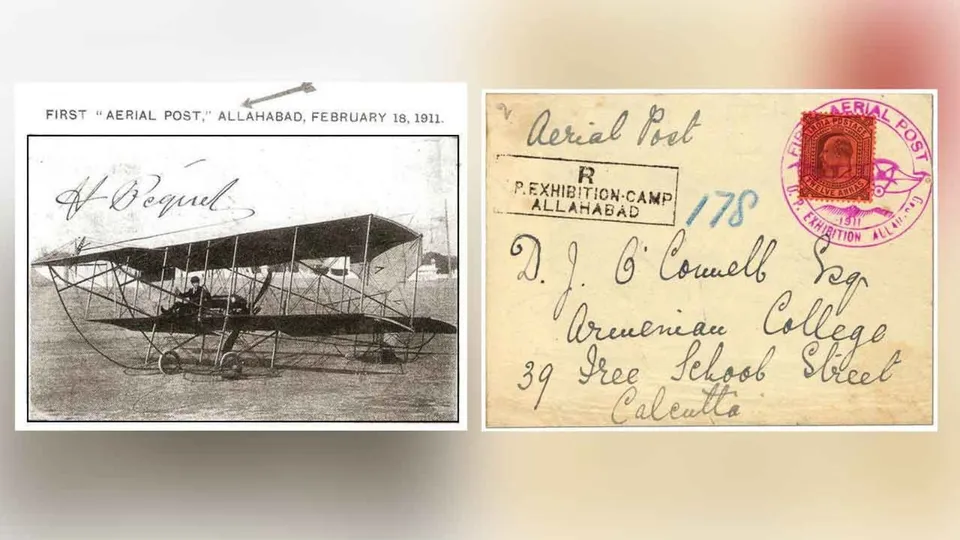 FIRST "AERIAL POST," ALLAHABAD, FEBRUARY 18, 1911.
H Pequet
Aerial Post
R
P. EXHIBITION-CAMP
ALLAHABAD
178
FIRST AERIAL POST
U. P. EXHIBITION ALLAHABAD
1911
INDIA POSTAGE
TWELVE ANNAS
D. J. O'Connell Esq.
Armenian College
39 Free School Street
Calcutta